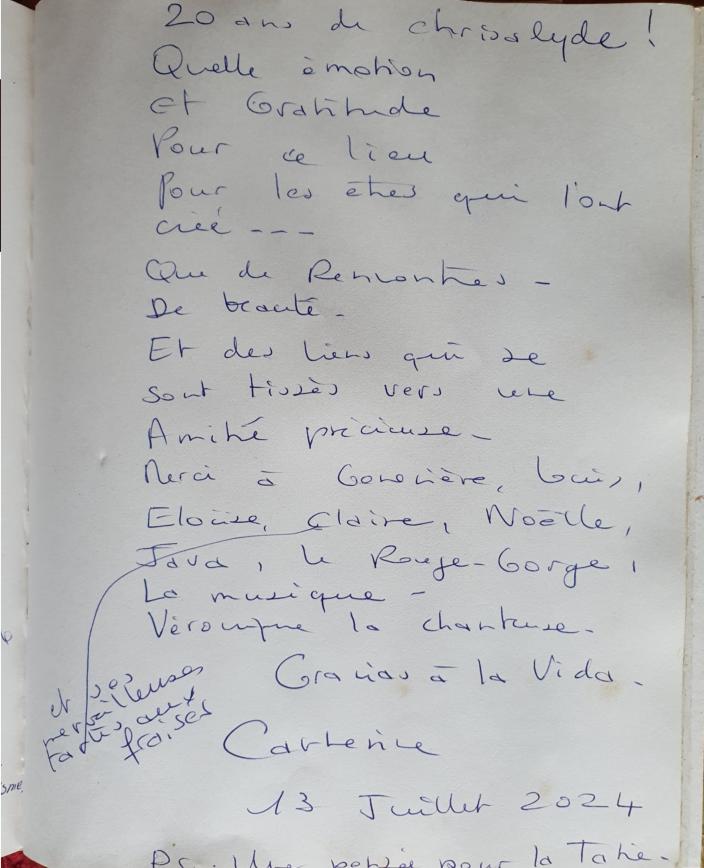 20 ans de chrisalyde !
Quelle émotion
et Gratitude
Pour ce lieu
Pour les êtres qui l'ont
créé ---
Que de Rencontres -
De beauté -
Et des liens qui se
sont tissés vers une
Amitié précieuse -
Merci à Geneviève, Louis,
Eloïse, Claire, Noëlle,
Java, le Rouge-Gorge,
La musique -
Véronique la chanteuse -
Gracias à la Vida -
et ses
merveilleuses
tartes aux
fraises
Catherine
13 Juillet 2024
Ps. Une pensée pour la Tatie -